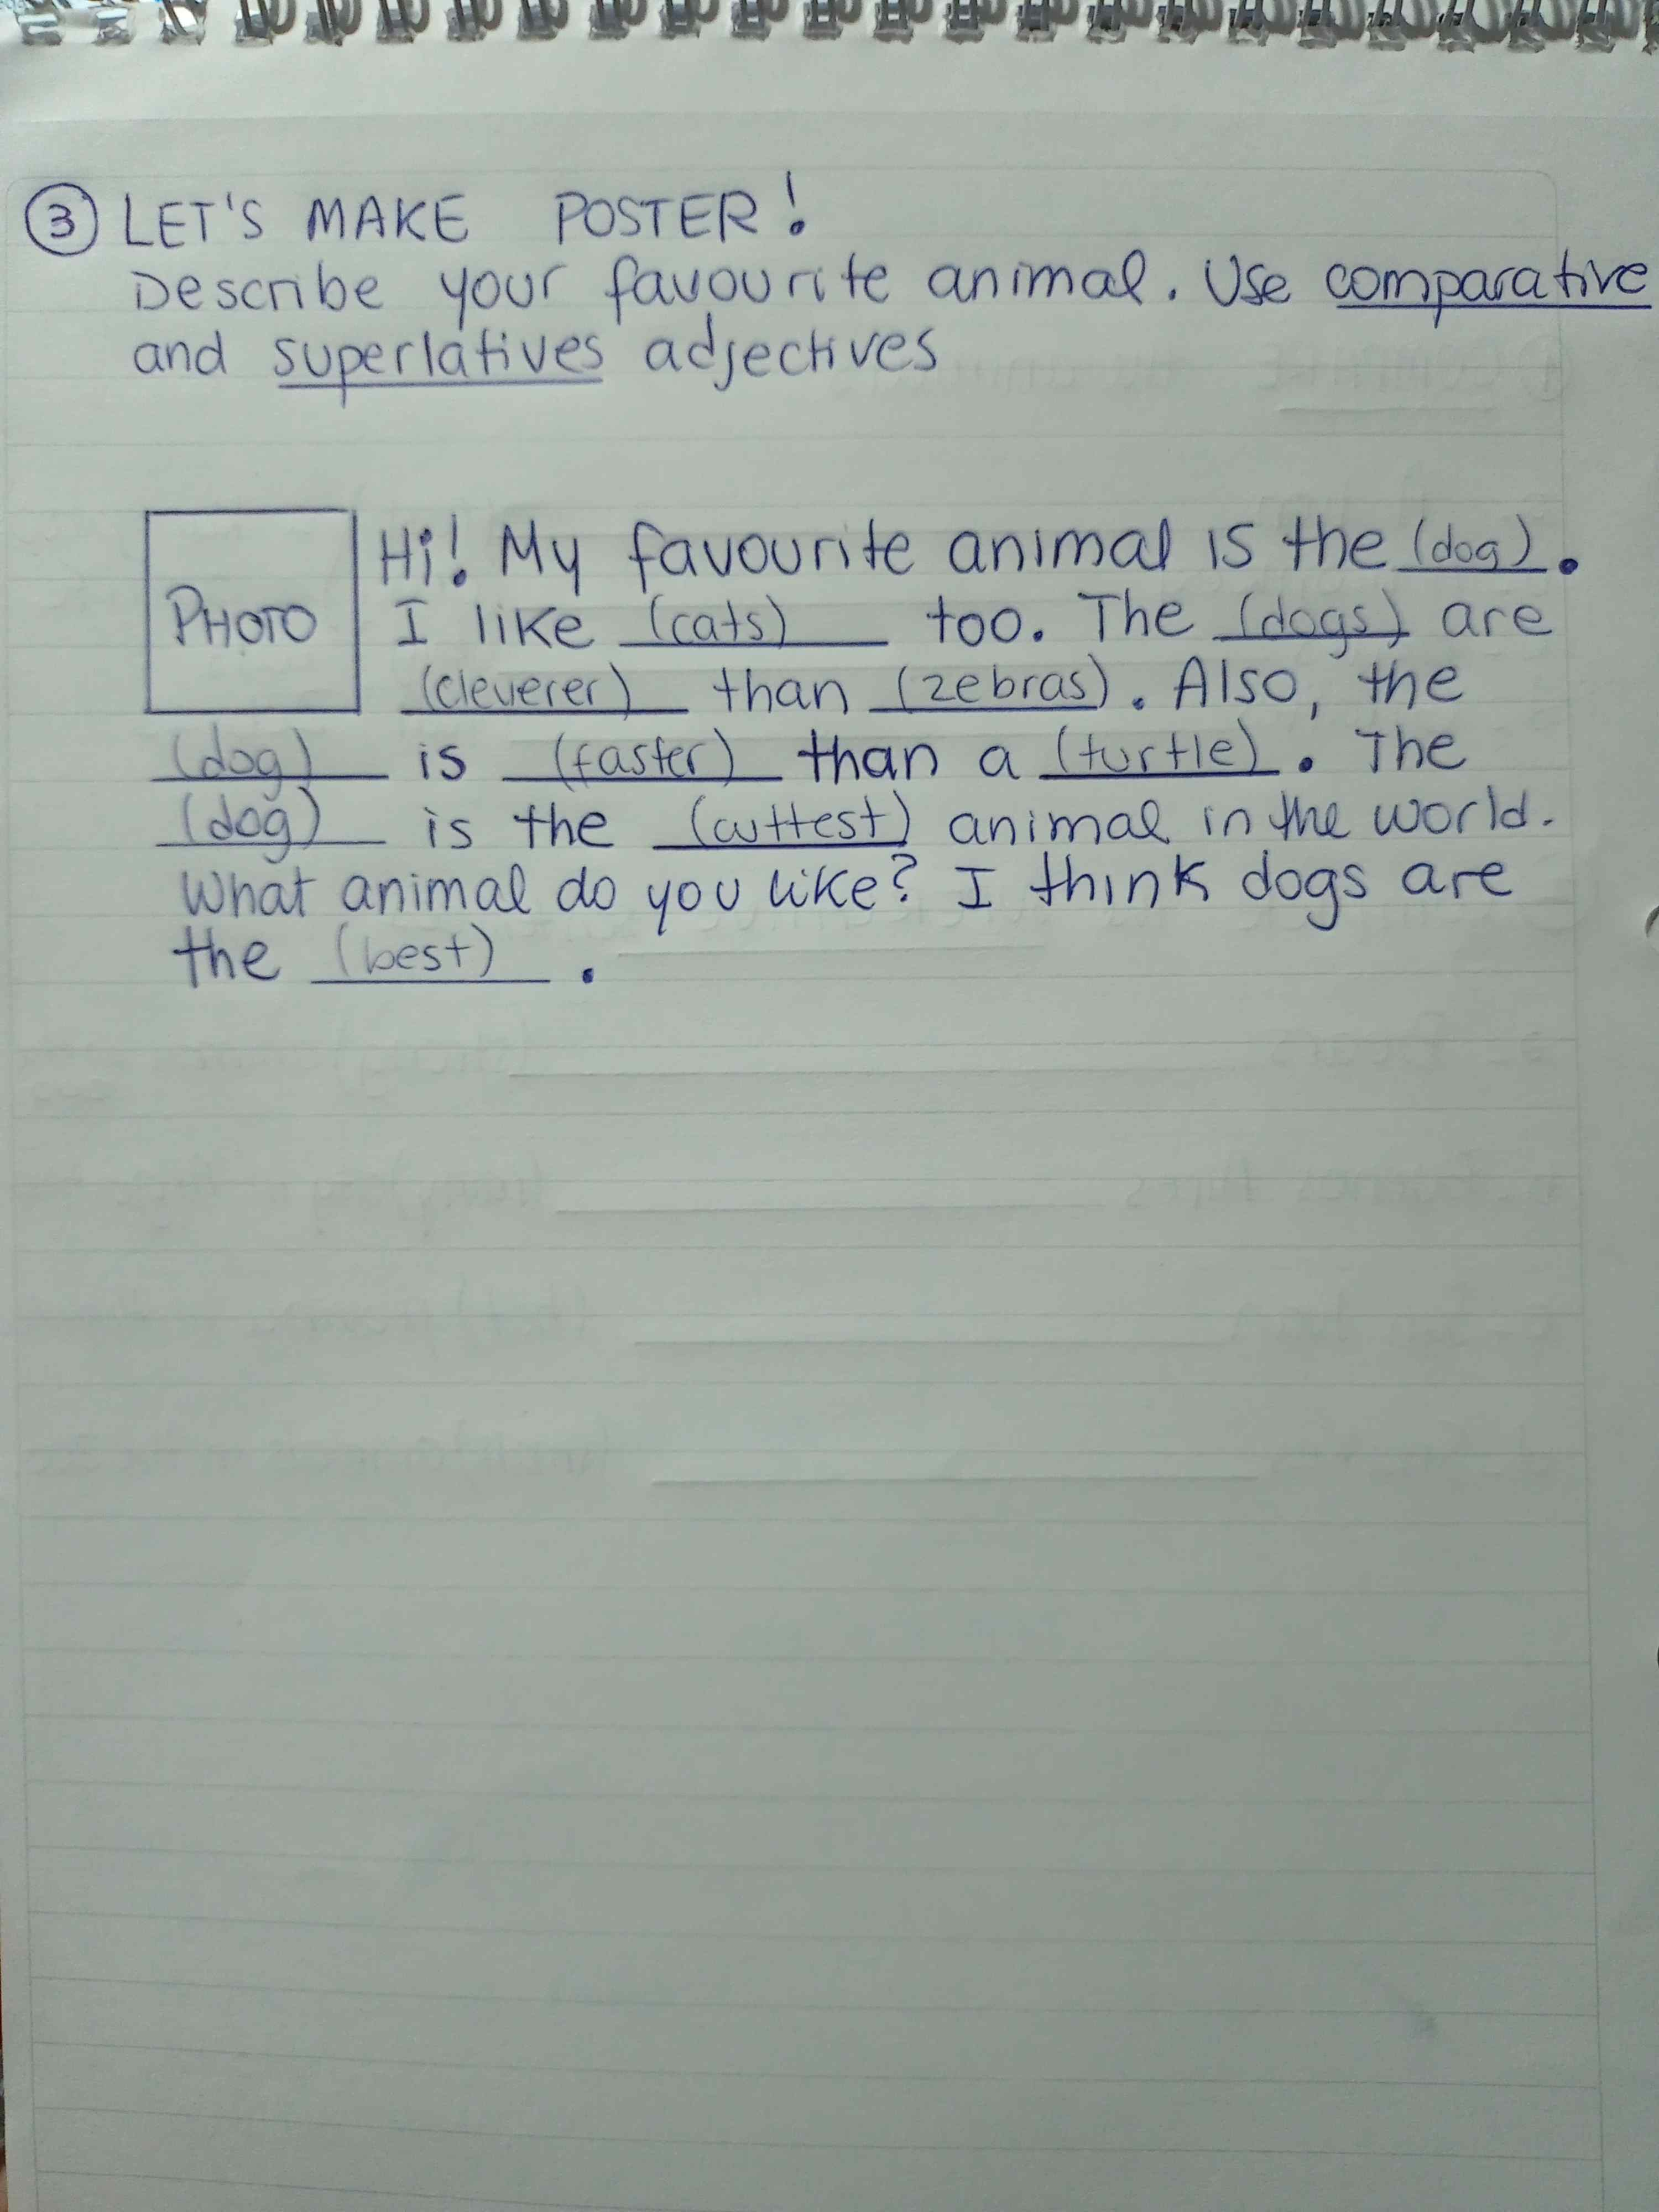 3 LET'S MAKE POSTER!
Describe your favourite animal. Use comparative
and superlatives adjectives
PHOTO
Hi! My favourite animal is the (dog).
I like (cats) too. The (dogs) are
(cleverer) than (zebras). Also, the
(dog) is (faster) than a (turtle). The
(dog) is the (cuttest) animal in the world.
What animal do you like? I think dogs are
the (best).